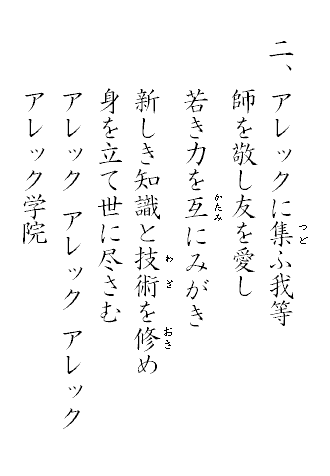 二、アレックに集ふ我等
つど
師を敬し友を愛し
若き力を互にみがき
かたみ
新しき知識と技術を修め
わざ
おさ
身を立て世に尽さむ
アレック アレック アレック
アレック学院